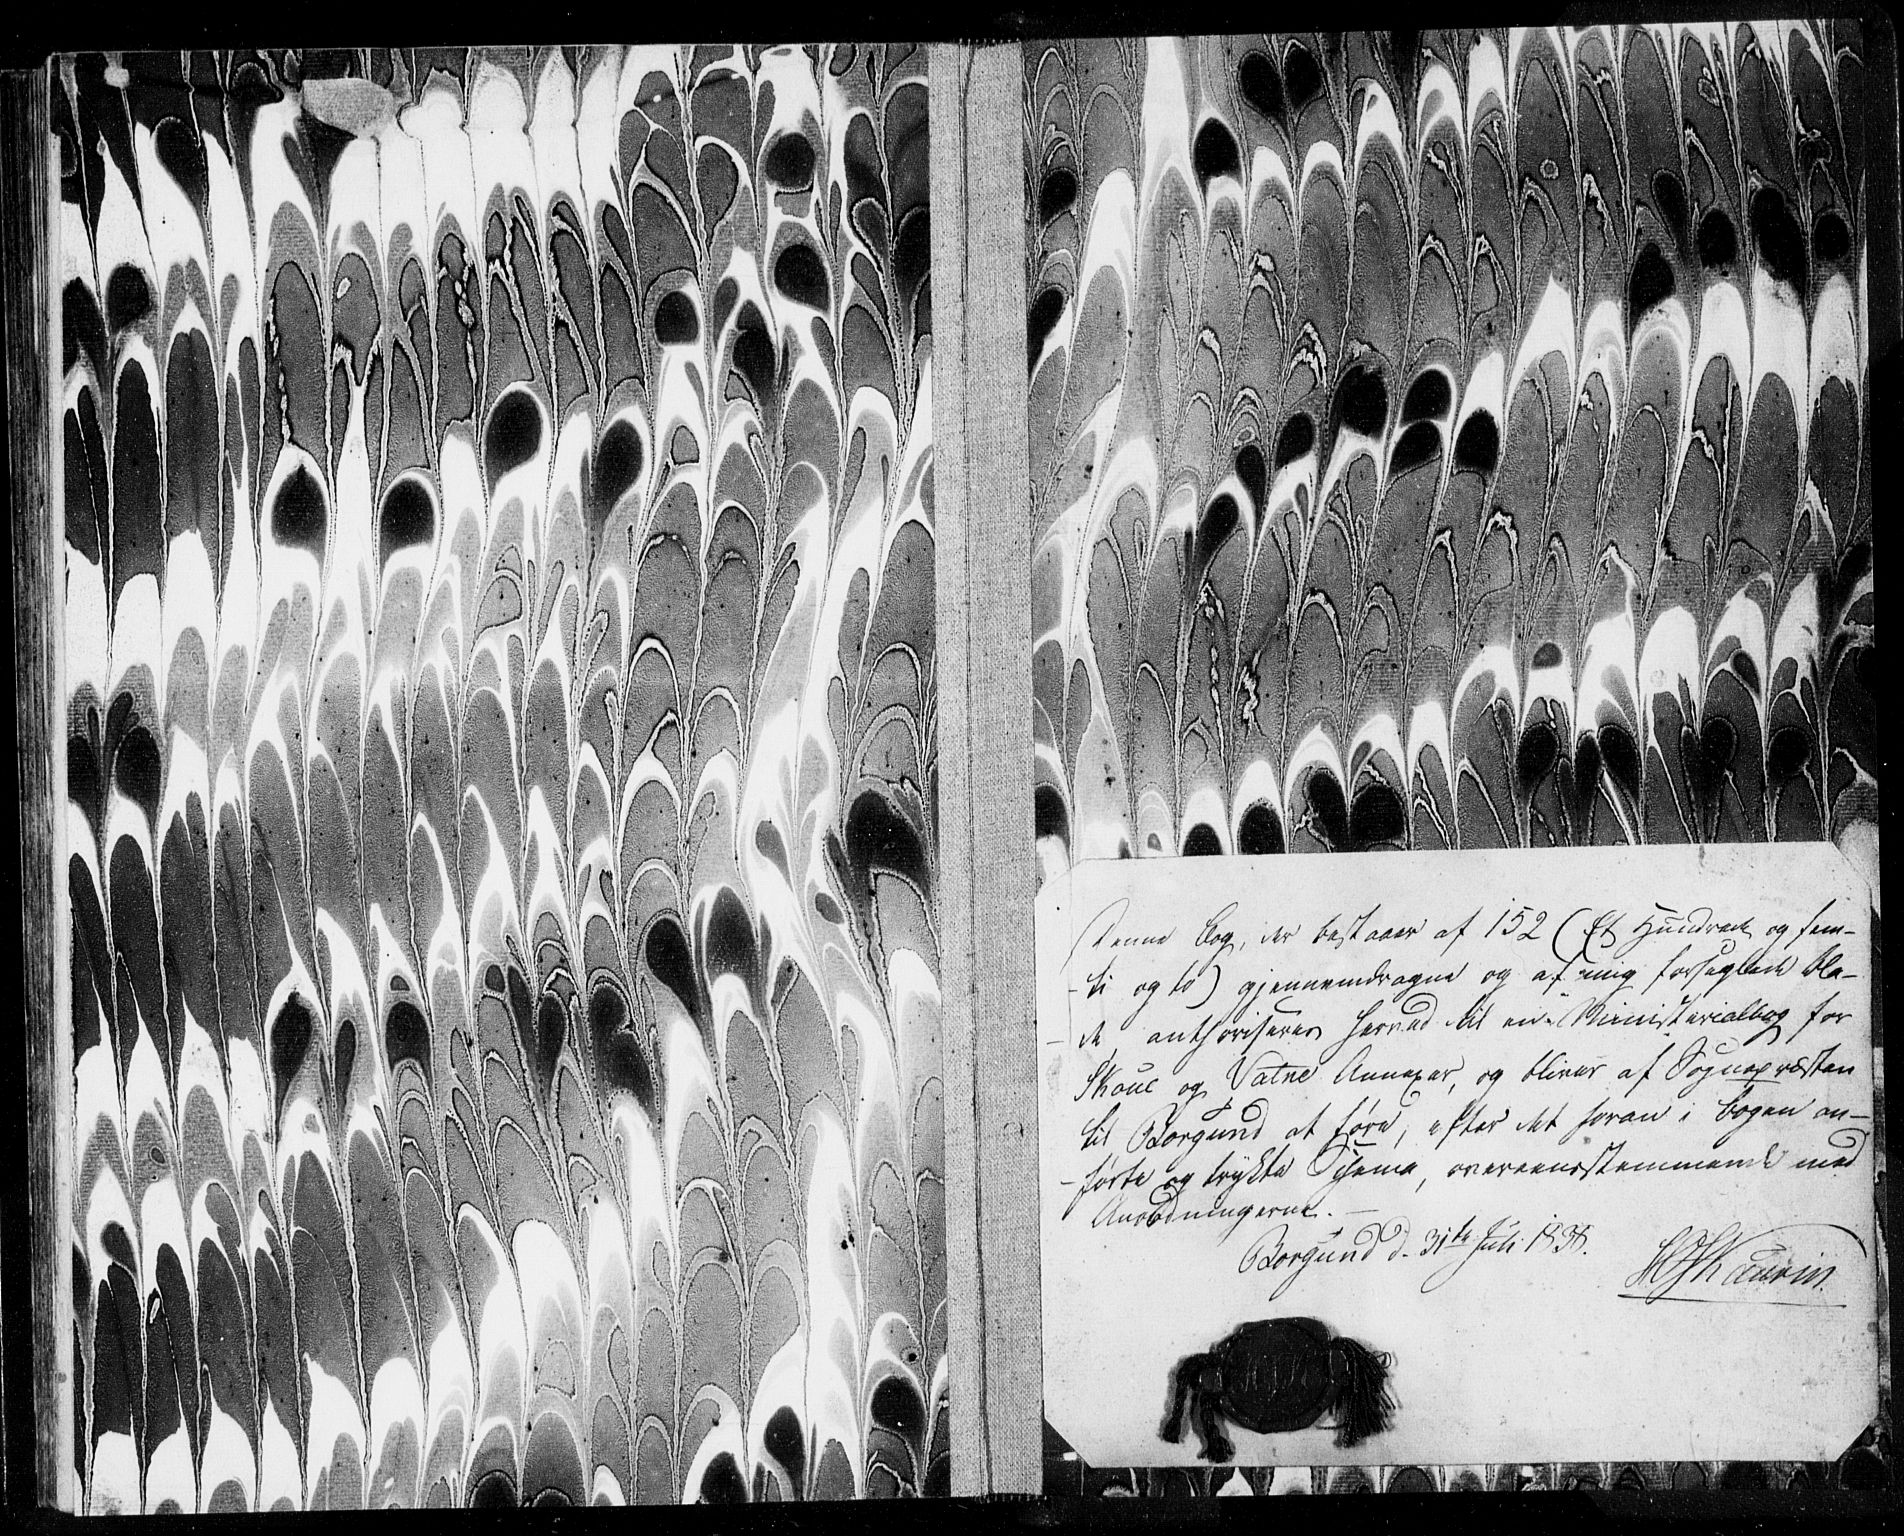 Denne Bog, der bestaaer af 152 (Et Hundrede og fem-
-ti og to) gjennemdragne og af mig forseglede Bla-
-de, authoriseres herved til en Ministerialbog for
Skoue og Vatne Annexer, og bliver af Sognepræsten
til Borgund at føre, efter det foran i Bogen an-
-førte og trykte Schema, overeensstemmende med
Anordningerne. —
Borgund d. 31te Juli 1838.